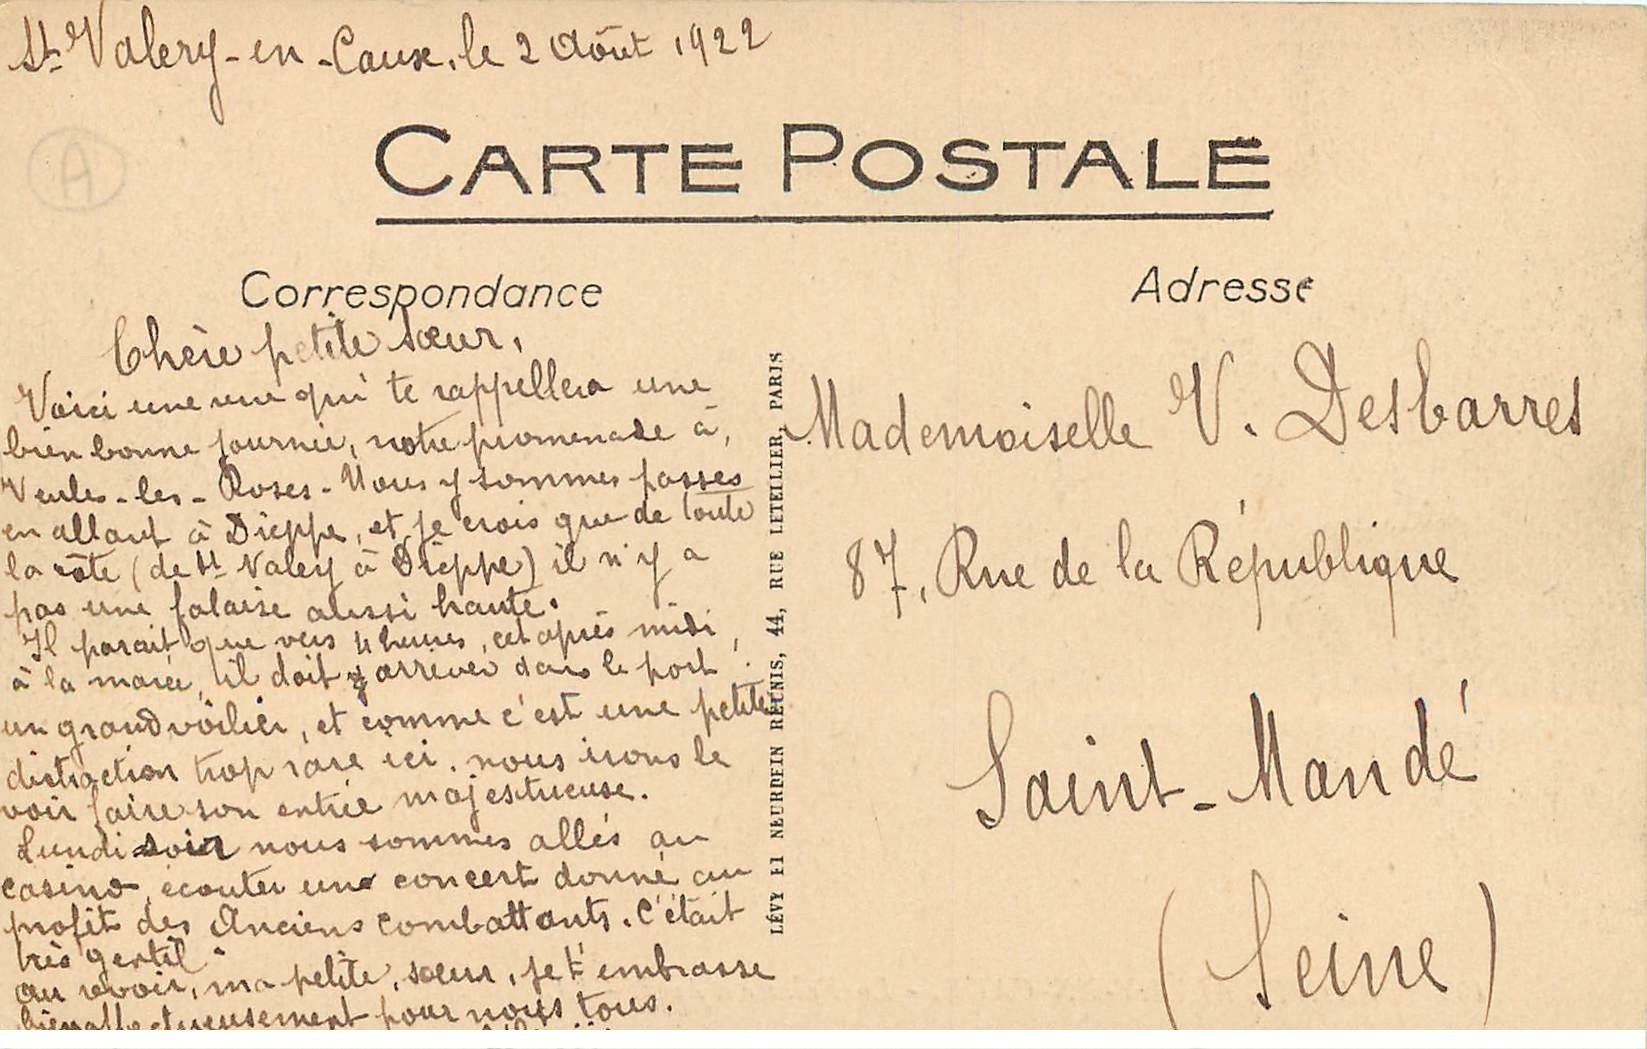 St Valery-en-Caux, le 2 Août 1922
A
CARTE POSTALE
Correspondance
Chère petite sœur,
Voici une vue qui te rappellera une
bien bonne journée, notre promenade à
Veules-les-Roses. Nous y sommes passés
en allant à Dieppe, et je crois que de toute
la côte (de St Valery à Dieppe) il n'y a
pas une falaise aussi haute.
Il parait que vers 4 heures, cet après midi,
à la marée, il doit arriver dans le port
un grand voilier, et comme c'est une petite
distraction trop rare ici, nous irons le
voir faire son entrée majestueuse.
Lundi soir nous sommes allés au
casino, écouter un concert donné au
profit des Anciens combattants. C'était
très gentil.
au revoir, ma petite sœur, je t'embrasse
bien affectueusement pour nous tous.
LÉVY ET NEURDEIN RÉUNIS, 44, RUE LETELLIER, PARIS
Adresse
Mademoiselle V. Desbarres
87, Rue de la République
Saint-Mandé
(Seine)